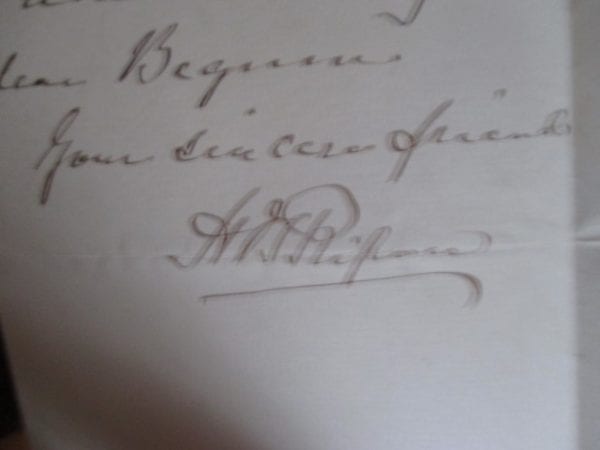 dear Begum
Your sincere friend
Ripon